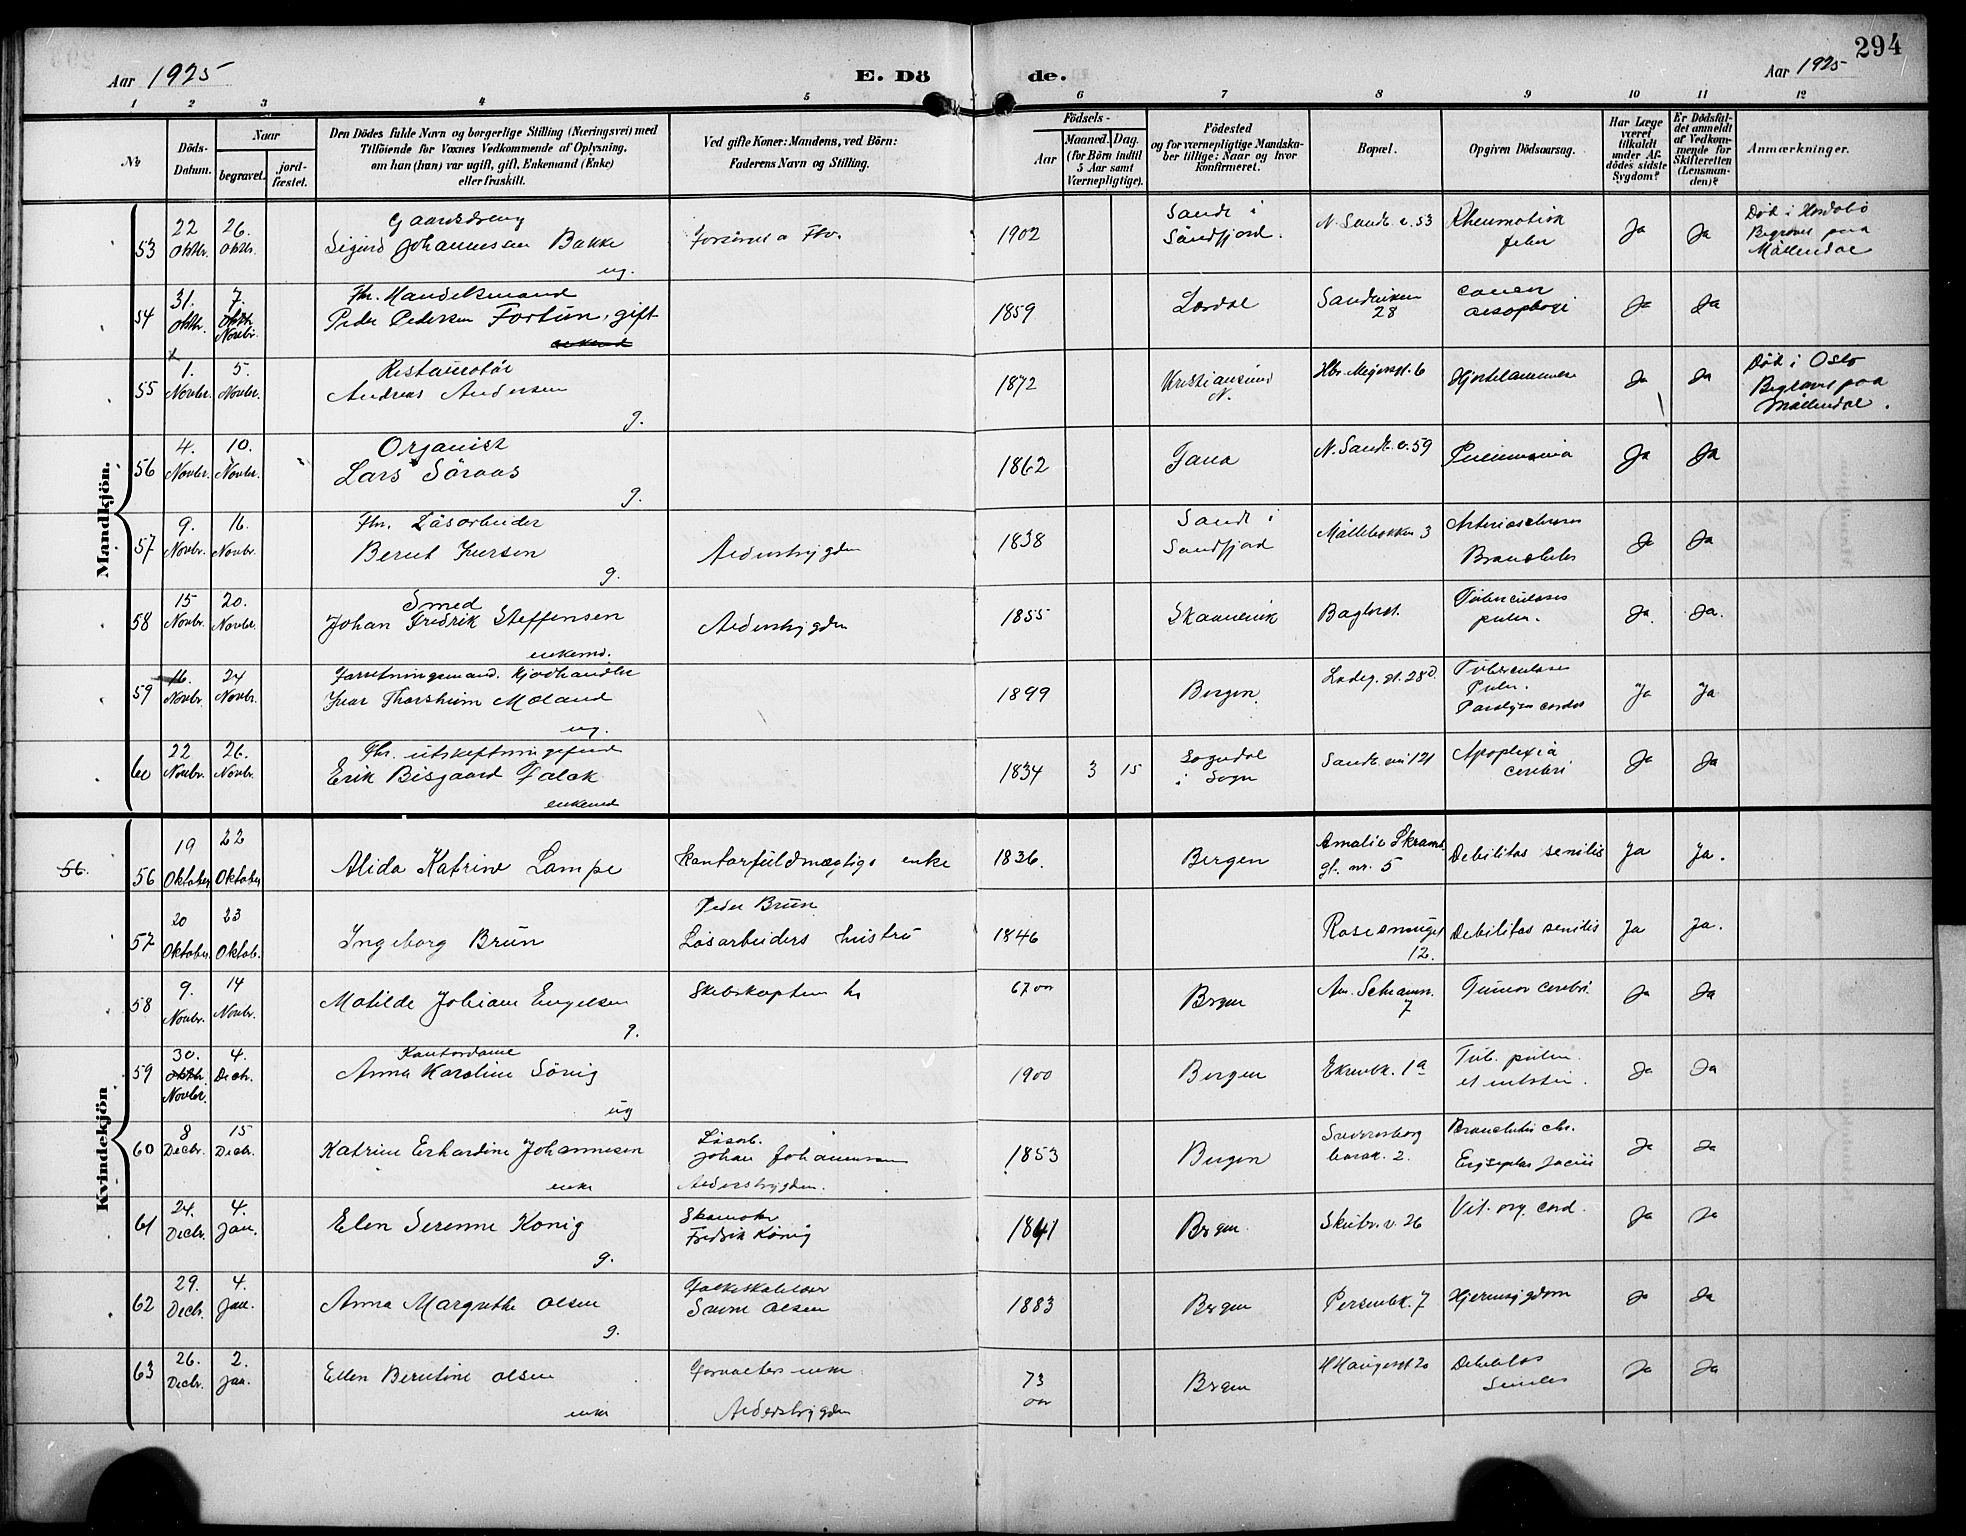 294
Aar 1925
E. Dö
de.
Aar 1925
1 2 3 4 5 6 7 8 9 10 11 12
No
Döds-Datum.
Naar
begravet.
jord-fæstet.
Den Dödes fulde Navn og borgerlige Stilling (Næringsvei) med
Tilföiende for Voxnes Vedkommende af Oplysning,
om han (hun) var ugift, gift, Enkemand (Enke)
eller fraskilt.
Ved gifte Koner: Mandens, ved Börn:
Faderens Navn og Stilling.
Födsels-
Aar
Maaned. Dag.
(for Börn indtil
5 Aar samt
Værnepligtige).
Födested
og for værnepligtige Mandska-
ber tillige: Naar og hvor
konfirmeret.
Bopæl.
Opgiven Dödsaarsag.
Har Læge
været
tilkaldt
under Af-
dödes sidste
Sygdom?
Er Dödsfal-
det anmeldt
af Vedkom-
mende for
Skifteretten
(Lensman-
den)?
Anmærkninger.
Mandkjön.
53 22 Oktbr. 26. Oktbr. Gaardsdreng
Sigurd Johannesen Bakke
ug.
1902 Sande i
Söndfjord. N. Sandv. v. 53 Rheumatisk
feber Ja Ja Död i
Begravet paa
Möllendal
54 31. Oktbr. 7. Oktbr. Novbr. Fhv. Handelsmand
Peder Pedersen Fortun, gift
enkemd
1859 Lærdal Sandviken
28 cancer
oesophagi Ja Ja
55 1. Novbr. 5. Novbr. Restauratör
Andreas Andersen
g.
1872 Kristiansund
N. Hjertelammelse Ja Ja Död i Oslo
Begravet paa
Möllendal.
56 4. Novbr. 10. Novbr. Organist
Lars Söraas
g.
1862 Fana N. Sandv. v. 59 Pneumonia Ja Ja
57 9. Novbr. 16. Novbr. Fhv. Lösarbeider
Bernt Iversen
g.
Alderstrygden 1838 Sande i
Söndfjord Möllebakken 3 Arteriosclerose
Bronchitis Ja Ja
58 15 Novbr. 20. Novbr. Smed
Johan Fredrik Steffensen
enkemd.
Alderstrygden 1855 Skaanevik Tuberculoses
pulm. Ja. Ja.
59 16. Novbr. 24 Novbr. Forretningsmand. Kjödhandler
Ivar Thorsheim Moland
ug.
1899 Bergen. Ladeg. gt. 28 Tuberculoses
Pulm.
Paralysis cordis Ja Ja
60 22 Novbr. 26. Novbr. Fhv.
Erik Bisgaard Falck
enkemd
1834 3 15 Sogndal
i Sogn Sandv. vei 121 Apoplexia
cerebri Ja Ja
Kvindekjön
56. 56 19 Oktober 22 Oktober Alida Katrine Lampe Kontorfuldmægtigs enke 1836. Bergen Amalie Skrams
gt. nr. 5 Debilitas senilis Ja Ja.
57 20 Oktober 23 Oktob. Ingeborg Brun Peder Brun
Lösarbeiders hustru 1846 Rosesmuget
12. Debilitas senilis Ja Ja.
58 9. Novbr. 14 Novbr. Matilde Juliane Engelsen
g.
67 aar Bergen
7 Tumor cerebri. Ja Ja
59 30. Oktbr. Novbr. 4. Decbr. Kontordame
Anna Karoline Sörvig
ug
1900 Bergen Ekrenbk. 1a Tub. pulm.
et intestin. Ja Ja
60 8 Decbr. 15 Decbr. Katrine Erhardine Johannesen
enke
Lösarb.
Johan Johannesen
Alderstrygden. 1853 Bergen Sverresborg
barak. 2. Bronchitis chr.
Erysipelas faciei Ja Ja
61 24. Decbr. 4. Jan. Elen Serenne König
g.
Skomaker
Fredrik König 1841 Bergen Skutv. v. 26 Vit. org. cord. Ja Ja
62 29. Decbr. 4. Jan. Anna Margrethe Olsen
g.
Olsen 1883 Bergen Persenbk. 7 Hjernesygdom Ja Ja
63 26. Decbr. 2. Jan. Ellen Berntine Olsen
enke
Forvalters enke
Alderstrygden 73
aar Bergen Debilitas
Senilis Ja Ja